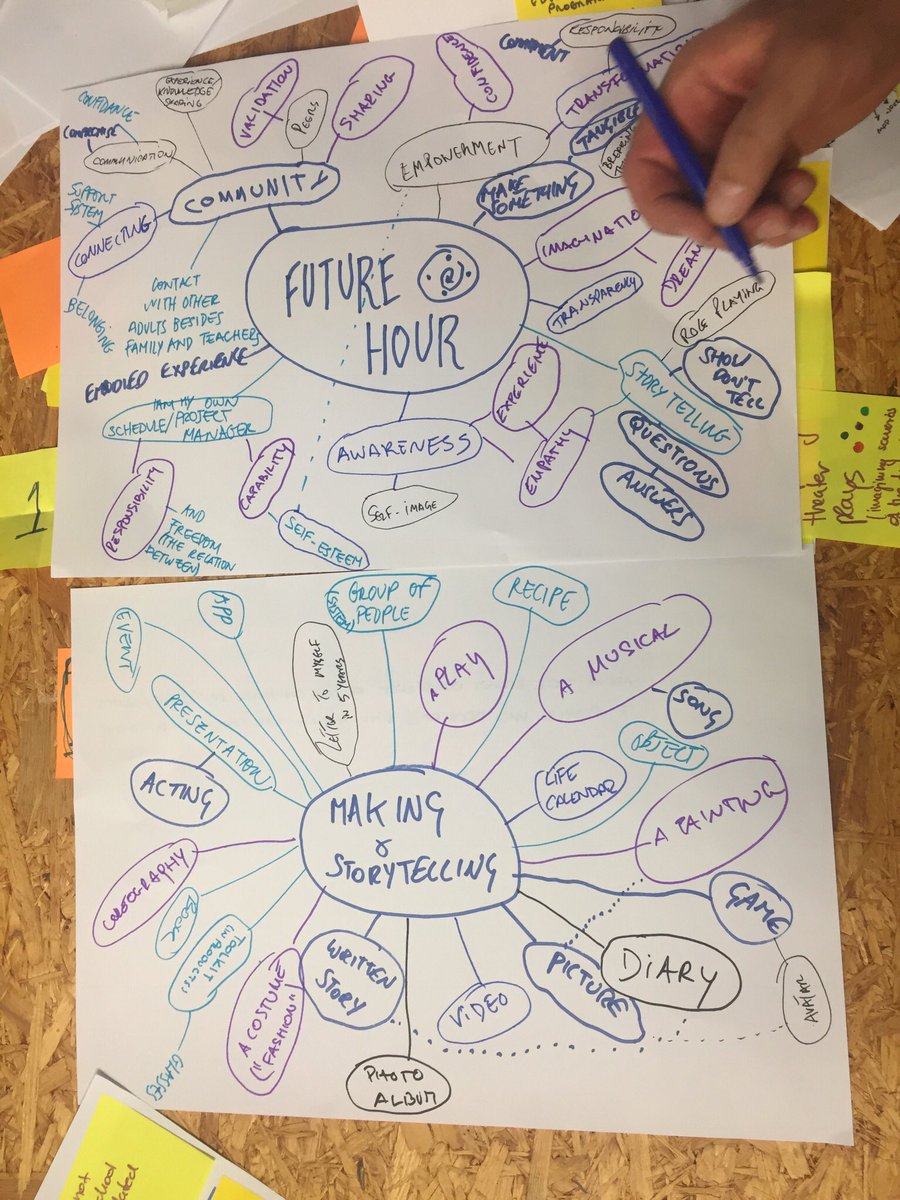 RESPONSIBILITY
COMMITMENT
EXPERIENCE/
KNOWLEDGE
SHARING
CONFIDANCE
COMPROMISE
COMMUNICATION
VALIDATION
PEERS
SHARING
CONFIDENCE
EMPOWERMENT
TRANSFORMATION
TANGIBLE
MAKE
SOMETHING
COMMUNITY
SUPPORT
SYSTEM
CONNECTING
BELONGING
CONTACT
WITH OTHER
ADULTS BESIDES
FAMILY AND TEACHERS
FUTURE @
HOUR
IMAGINATIO
DREAM
TRANSPARENCY
ROLE PLAYING
SHOW
DON'T
TELL
STORYTELLING
QUESTIONS
ANSWERS
EMBODIED EXPERIENCE
I AM MY OWN
SCHEDULE/PROJECT
MANAGER
RESPONSIBILITY
AND
FREEDOM
(THE RELATION
BETWEEN)
CAPABILITY
SELF-ESTEEM
AWARENESS
SELF-IMAGE
EXPERIENCE
EMPATHY
1
theater
plays
EVENT
APP
PRESENTATION
ACTING
LETTER TO MYSELF
IN 5 YEARS
GROUP OF
PEOPLE
RECIPE
A PLAY
A MUSICAL
SONG
OBJECT
LIFE
CALENDAR
MAKING
&
STORYTELLING
A PAINTING
GAME
AVATAR
COREOGRAPHY
BOOK
TOOLKIT
GLASSES
A COSTUME
("FASHION")
WRITTEN
STORY
PHOTO
ALBUM
VIDEO
PICTURE
DIARY
not